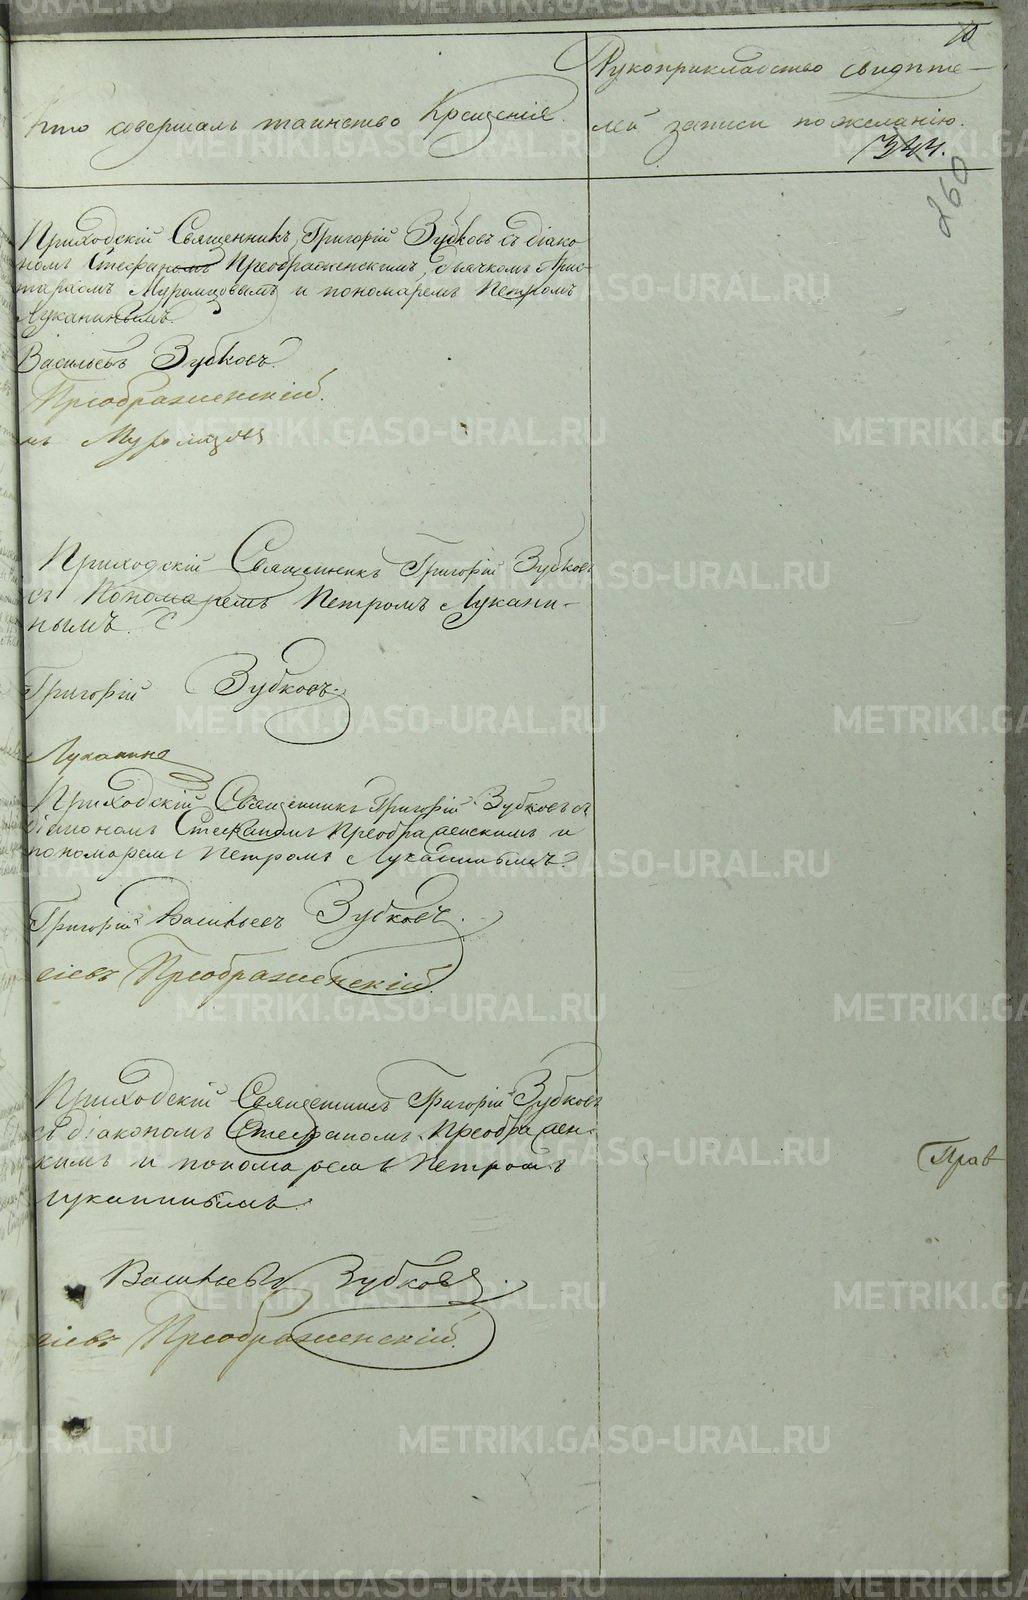 10
Кто совершалъ таинство Крещенія.
Рукоприкладство свидѣте-
лей записи по желанію.
344.
260
Приходскій Священникъ Григорій Зубковъ съ діако
номъ Стефаномъ Преображенскимъ, дьячкомъ Арис-
тархомъ Муромцовымъ и пономаремъ Петромъ
Луканинымъ.
Васильевъ Зубковъ.
Преображенскій.
Муромцовъ
Приходскій Священникъ Григорій Зубковъ
съ Пономаремъ Петромъ Лукани-
нымъ.
Григорій Зубковъ.
Луканинъ
Приходскій Священникъ Григорій Зубковъ съ
діакономъ Стефаномъ Преображенскимъ и
пономаремъ Петромъ Луканинымъ.
Григорій Васильевъ Зубковъ.
сіевъ Преображенскій.
Приходскій Священникъ Григорій Зубковъ
съ діакономъ Стефаномъ Преображен-
скимъ и пономаремъ Петромъ
Луканинымъ.
Прав
Васильевъ Зубковъ.
сіевъ Преображенскій.
METRIKI.GASO-URAL.RU